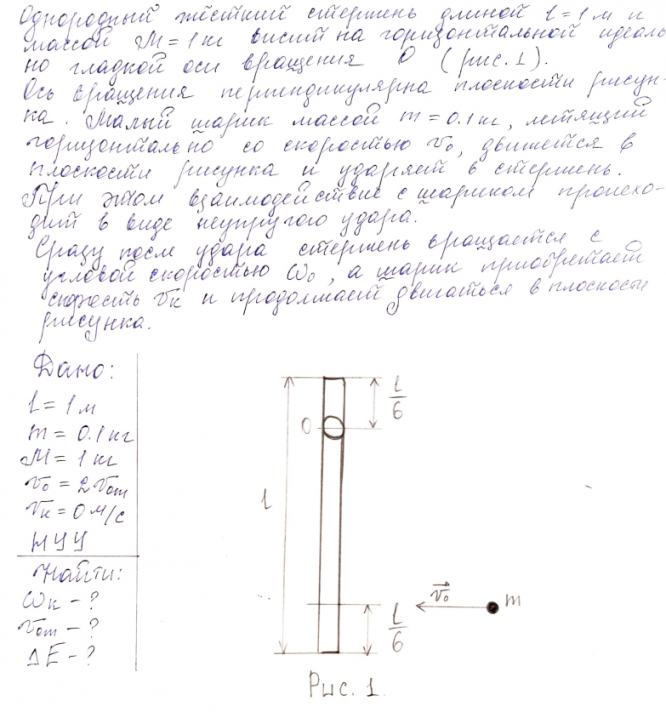 Однородный жёсткий стержень длиной l = 1 м и
массой M = 1 кг висит на горизонтальной идеаль
но гладкой оси вращения O (рис. 1).
Ось вращения перпендикулярна плоскости рисун-
ка. Малый шарик массой m = 0.1 кг, летящий
горизонтально со скоростью v₀, движется в
плоскости рисунка и ударяет в стержень.
При этом взаимодействие с шариком происхо-
дит в виде неупругого удара.
Сразу после удара стержень вращается с
угловой скоростью ω₀, а шарик приобретает
скорость vк и продолжает двигаться в плоскости
рисунка.
Дано:
l = 1 м
m = 0.1 кг
M = 1 кг
v₀ = 2 vот
vк = 0 м/с
НУУ
Найти:
ωк - ?
vот - ?
ΔE - ?
l/6
O
l
l/6
v₀
m
Рис. 1.